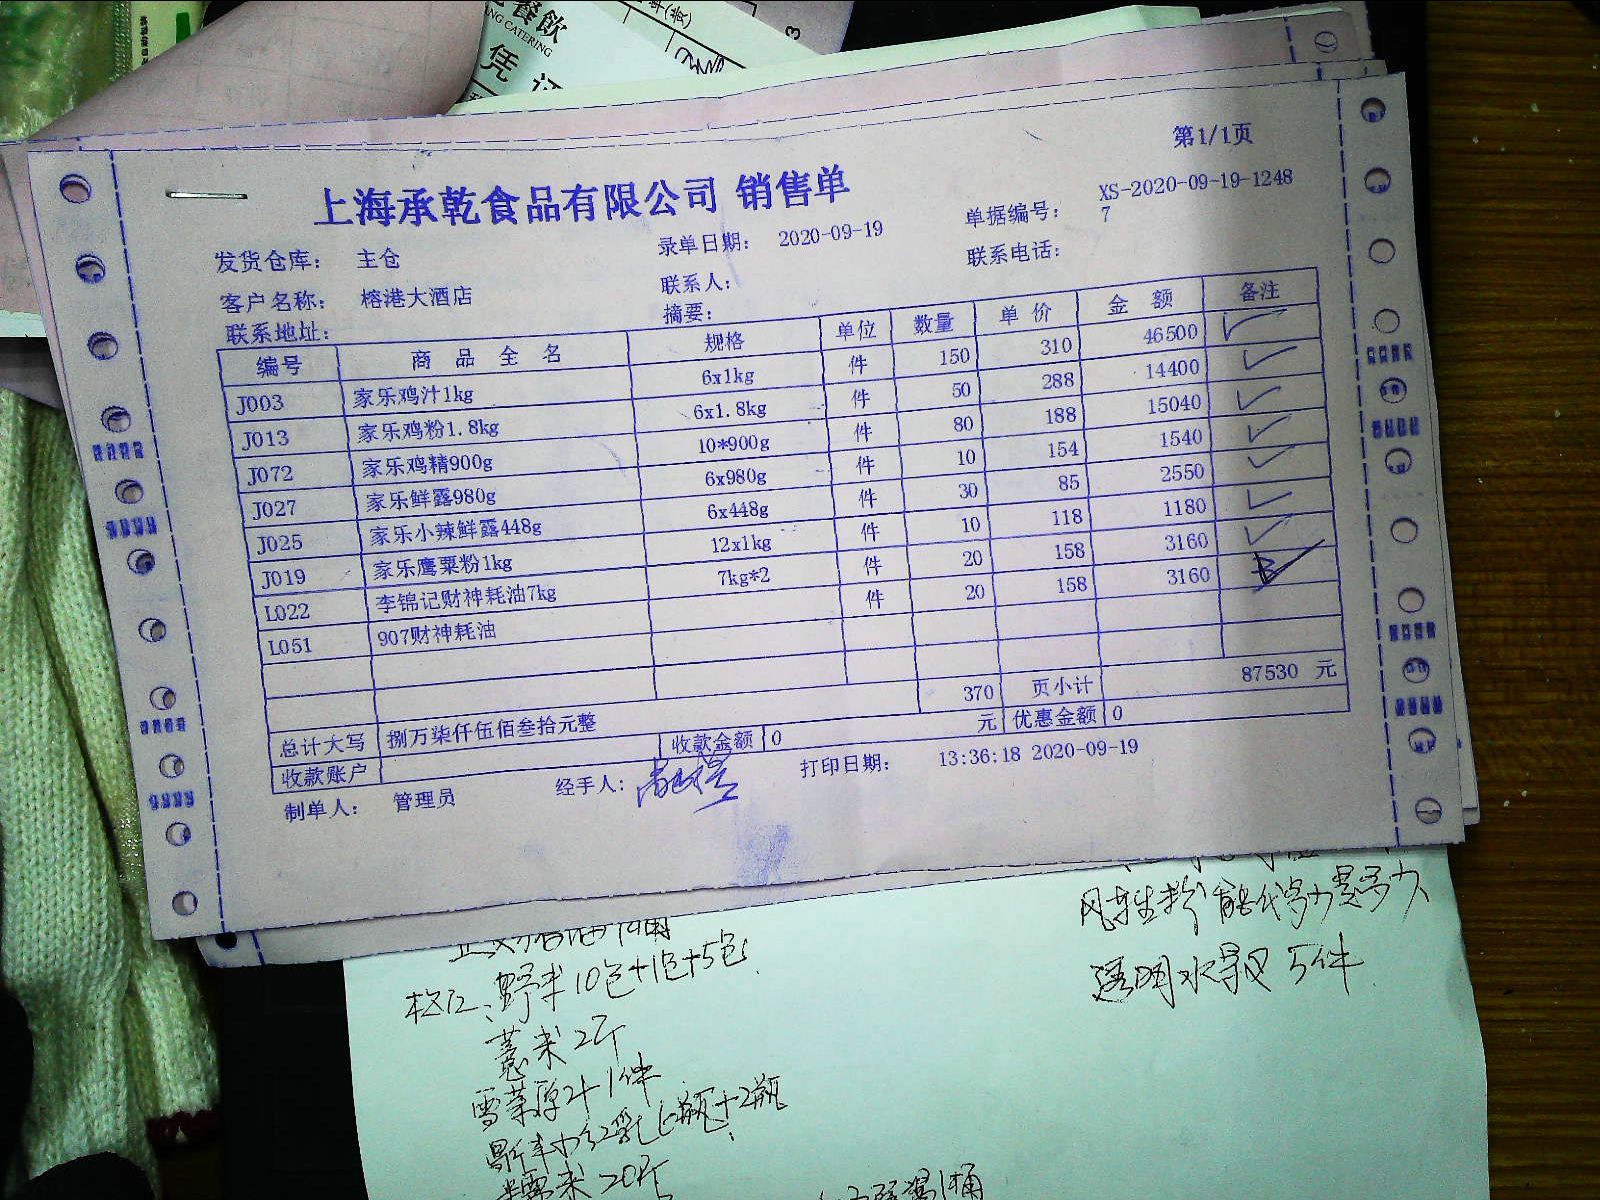 餐饮
NG CATERING
凭 证
第1/1页
上海承乾食品有限公司 销售单
发货仓库： 主仓 录单日期： 2020-09-19 单据编号： XS-2020-09-19-1248
7
客户名称： 榕港大酒店 联系人： 联系电话：
联系地址： 摘要：
编号 商 品 全 名 规格 单位 数量 单 价 金 额 备注
J003 家乐鸡汁1kg 6x1kg 件 150 310 46500
J013 家乐鸡粉1.8kg 6x1.8kg 件 50 288 14400
J072 家乐鸡精900g 10*900g 件 80 188 15040
J027 家乐鲜露980g 6x980g 件 10 154 1540
J025 家乐小辣鲜露448g 6x448g 件 30 85 2550
J019 家乐鹰粟粉1kg 12x1kg 件 10 118 1180
L022 李锦记财神耗油7kg 7kg*2 件 20 158 3160
L051 907财神耗油 件 20 158 3160
370 页小计 87530 元
总计大写 捌万柒仟伍佰叁拾元整 收款金额 0 元 优惠金额 0
收款账户
制单人： 管理员 经手人： 打印日期： 13:36:18 2020-09-19
透明水晶 5件
松江：野米10包+1包+5包
薏米2斤
雪菜原汁1件
糯米20斤